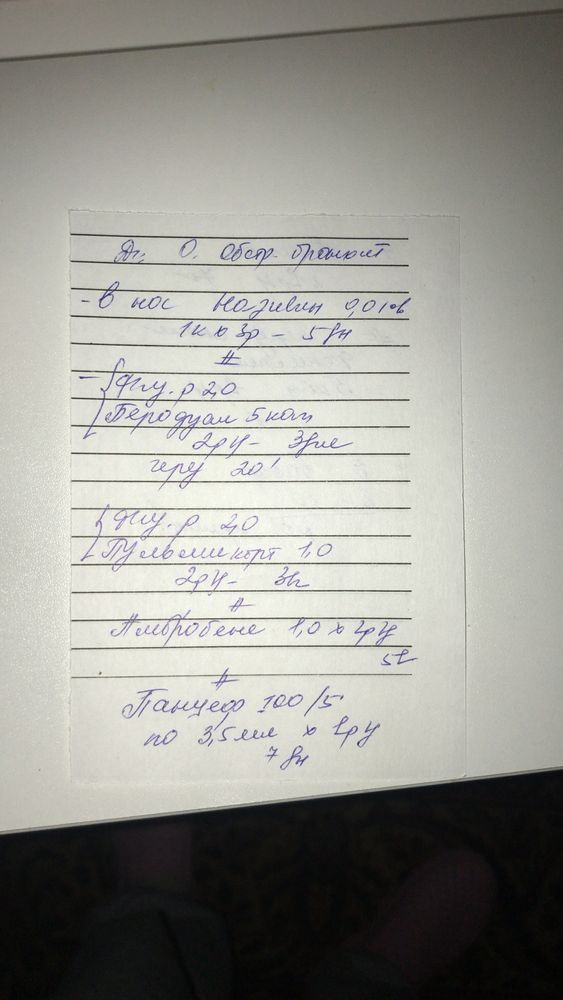 Ds: О. Обстр. бронхит
- В нос Називин 0,01%
1к х 3р - 5дн
#
- Физ. р 2,0
Беродуал 5 кап
2р/у - 3дня
через 20'
Физ. р 2,0
Пульмикорт 1,0
2р/у - 3д
#
Амбробене 1,0 х 2р/у
5д
#
Панцеф 100/5
по 3,5 мл х 1р/у
7 дн